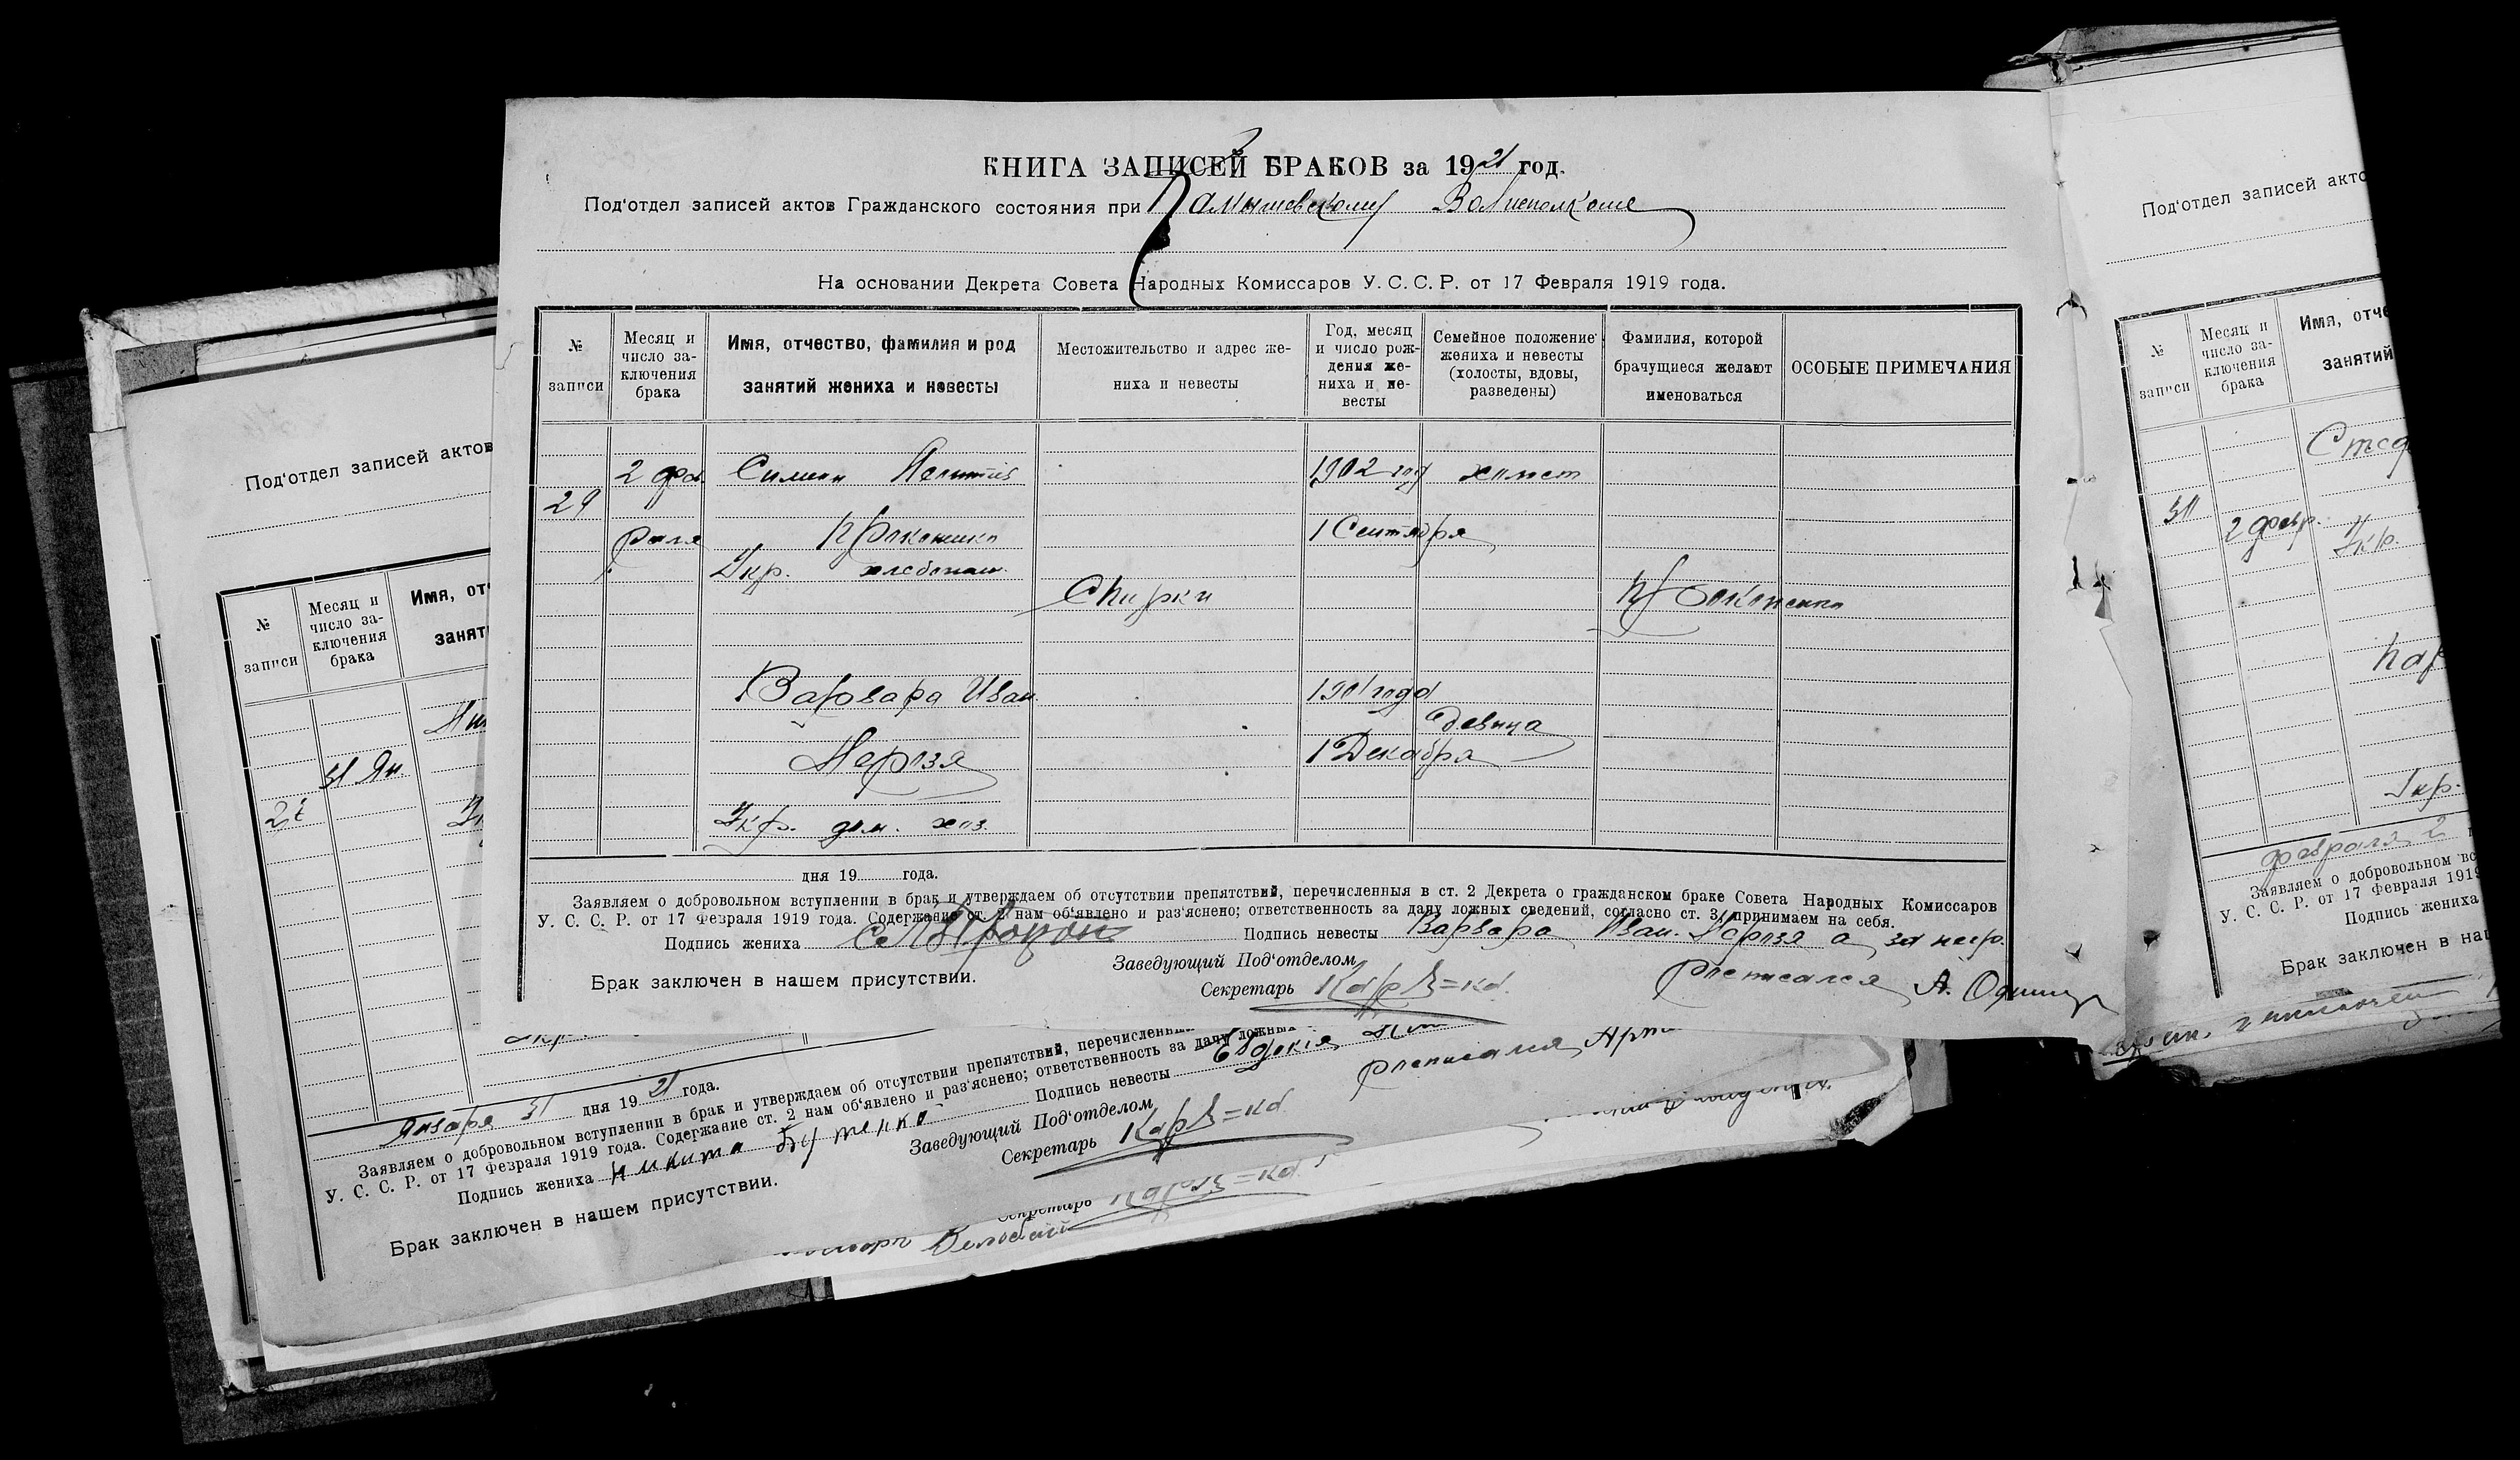 КНИГА ЗАПИСЕЙ БРАКОВ за 1921 год.
Под'отдел записей актов Гражданского состояния при Камышевскому Волисполкоме
На основании Декрета Совета Народных Комиссаров У.С.С.Р. от 17 Февраля 1919 года.
№ записи
Месяц и число заключения брака
Имя, отчество, фамилия и род занятий жениха и невесты
Местожительство и адрес жениха и невесты
Год, месяц и число рождения жениха и невесты
Семейное положение жениха и невесты (холосты, вдовы, разведены)
Фамилия, которой брачущиеся желают именоваться
ОСОБЫЕ ПРИМЕЧАНИЯ
29
2 фев
раля
Симеон
Прокопенко
Укр. хлебопаш.
Спирки
1902 год
1 Сентября
холост
Прокопенко
Варвара Иван.
Мерозя
Укр. дом. хоз.
1901 года
1 Декабря
девица
дня 19 года.
Заявляем о добровольном вступлении в брак и утверждаем об отсутствии препятствий, перечисленныя в ст. 2 Декрета о гражданском браке Совета Народных Комиссаров
У. С. С. Р. от 17 Февраля 1919 года. Содержание ст. 2 нам об'явлено и раз'яснено; ответственность за дачу ложных сведений, согласно ст. 3, принимаем на себя.
Подпись жениха
Подпись невесты Варвара Иван. Мерозя а за негр.
росписался А.
Брак заключен в нашем присутствии.
Заведующий Под'отделом
Секретарь
Под'отдел записей актов
№ записи
Месяц и число заключения брака
Имя,
31 Ян.
Января 31 дня 1921 года.
Заявляем о добровольном вступлении в брак и утверждаем об отсутствии препятствий,
У. С. С. Р. от 17 Февраля 1919 года. Содержание ст. 2 нам об'явлено и раз'яснено; ответственность за дачу ложных
Подпись жениха Никита
Подпись невесты Евдокія
росписался
Брак заключен в нашем присутствии.
Заведующий Под'отделом
Секретарь
Секретарь
Под'отдел записей
№ записи
Месяц и число заключения брака
Имя,
занятий
2 февр.
Укр.
Укр.
февраля 2
Заявляем о добровольном
У. С. С. Р. от 17 Февраля 1919
Подпись жениха
Брак заключен в